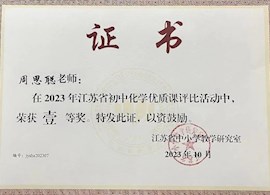 证书
周思聪老师：
在2023年江苏省初中化学优质课评比活动中，
荣获 壹 等奖。特发此证，以资鼓励。
江苏省中小学教学研究室
2023年10月
编号：